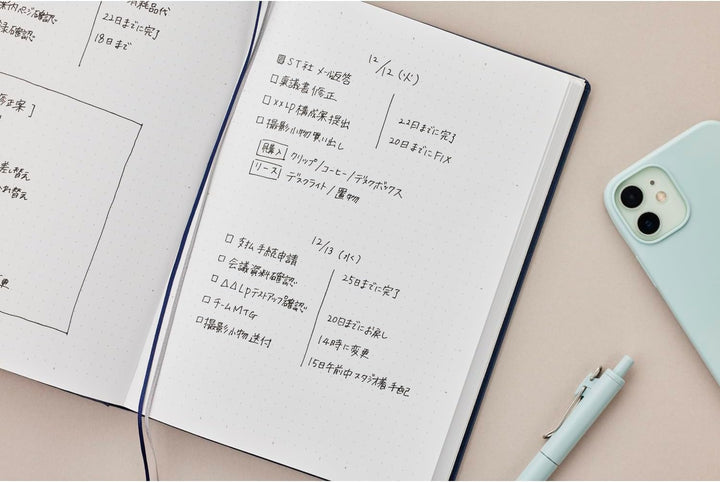 消耗品代
22日までに完了
18日まで
修正案]
差し替え
12/12 (火)
ST社 メール返答
□ 稟議書修正
□ xxLp構成案提出
22日までに完了
□ 撮影小物買い出し
20日までにFIX
購入 クリップ/コーヒー/デスクボックス
リース デスクライト/置物
12/13 (水)
□ 支払手続申請
25日までに完了
□ 会議資料確認
□ △△Lpテストアップ確認
20日までにお戻し
□ チームMTG
14時に変更
□ 撮影小物送付
15日午前中スタジオ着手配